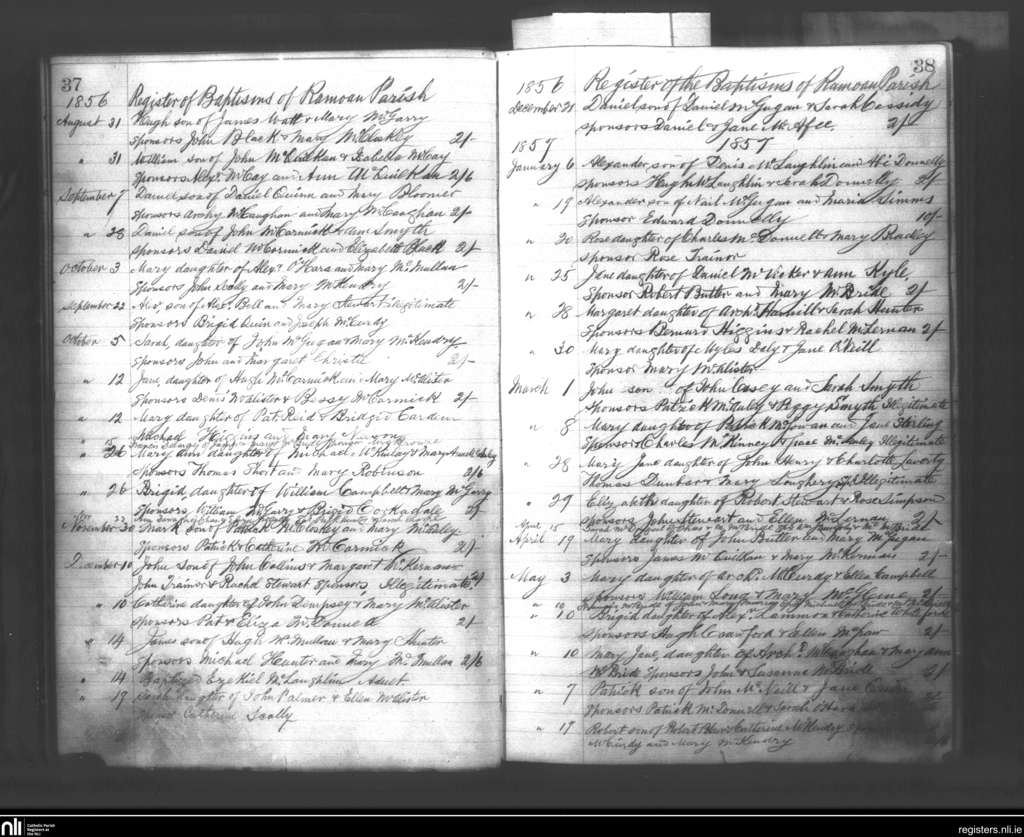 37
1856 Register of Baptisms of Ramoan Parish
August 31 Hugh son of James Watt & Mary McGarry
Sponsors John Black & Mary 2/-
" 31 William son of John & Isabella McCay
Sponsors Alexr. McCay and Ann McQuilkan 2/6
September 7 Daniel son of Daniel Quinn and Mary Bloomer
Sponsors Archy McCaughan and Mary McCaughan 2/-
" 28 Daniel son of John McCormick & Smyth
Sponsors Daniel McCormick and Elizabeth Black 2/-
October 3 Mary daughter of Alexr. O'Hara and Mary McMullan
Sponsors John Scally and Mary McKendry 2/-
September 22 Alex. son of Alexr. Bell and Mary Stewart illegitimate
Sponsors Brigid Quin and Joseph McCurdy
October 5 Sarah daughter of John McGugan & Mary McKendry
Sponsors John and Margaret Christie 2/-
" 12 Jane, daughter of Hugh McCormick and Mary McAlister
Sponsors Denis McAlister & Bessy McCormick 2/-
" 12 Mary daughter of Pat. Reid & Bridgid Carden
Michael Higgins and Mary
" 15
" 26 Mary Ann daughter of Michael McKinlay & Mary
Sponsors Thomas Short and Mary Robinson 2/6
" 26 Brigid daughter of William Campbell & Mary McGarry
Sponsors William McGarry & Brigid Cockadale 2/-
Nov 22
November Mark son of Patrick McCloskey and Mary McAuley
Sponsors Patrick & Catherine McCormick 2/-
December 10 John son of John Collins & Margaret McKernan
John Trainor & Rachel Stewart Sponsors, Illegitimate 2/-
" 10 Catherine daughter of John Dempsey & Mary McAlister
Sponsors Pat & Eliza McDonnell 2/-
" 14 James son of Hugh McMullan & Mary Hunter
Sponsors Michael Hunter and Mary McMullan 2/6
" 14 Baptized Ezekiel McLaughlin Adult
" 19 daughter of John Palmer & Ellen McAlister
Sponsor Catherine Scally
38
1856 Register of the Baptisms of Ramoan Parish
December 21 Daniel son of Daniel McGugan & Sarah Cassidy
Sponsors Daniel & Jane McAfee. 2/-
1857 1857
January 6 Alexander son of Denis McLaughlin and Donnelly
Sponsors Hugh McLaughlin & Sarah Donnelly 2/-
" 19 Alexander son of Neil McGugan and Maria Simms
Sponsor Edward Donnelly 10/-
" 20 Rose daughter of Charles McDonnell & Mary Bradley
Sponsor Rose Trainor
" 25 Jane daughter of Daniel McVicker & Ann Kyle
Sponsor Robert Butler and Mary McBride 2/-
" 28 Margaret daughter of Archd. Hamill & Sarah Hunter
Sponsors Bernard Higgins & Rachel McLernan 2/-
" 30 Mary daughter of Myles Daly & Jane O'Neill
Sponsor Mary McAlister
March 1 John son of John Casey and Sarah Smyth
Sponsors Patrick McAuley & Peggy Smyth Illegitimate
" 8 Mary daughter of Patrick McGowan and Jane Sterling
Sponsor Charles McKinney & Jane McAuley Illegitimate
" 28 Mary Jane daughter of John Henry & Charlotte Laverty
Thomas Dunbar & Mary Loughery Illegitimate
" 29 Elizabeth daughter of Robert Stewart & Rose Simpson
Sponsors John Stewart and Ellen McLernan 2/-
April 15
April 19 Mary daughter of John Butler and Mary McGugan
Sponsors James McQuilkan & Mary McKernan 2/-
May 3 Mary daughter of Archd. McCurdy & Ellen Campbell
Sponsors William Long & Mary 2/-
" 10
" 10 Brigid daughter of Alexr. Lammon &
Sponsors Hugh Crawford & Ellen McGraw 2/-
" 10 Mary Jane, daughter of Archd. McCaughan & Mary Ann
McBride Sponsors John & Susanna McBride 2/-
" 7 Patrick son of John McNeill & Jane
Sponsors Patrick McDonnell & Sarah O'Hara
" 17 Robert son of Robert & Catherine McKendry
McCurdy and Mary McKendry
nli Catholic Parish Registers at the NLI
registers.nli.ie